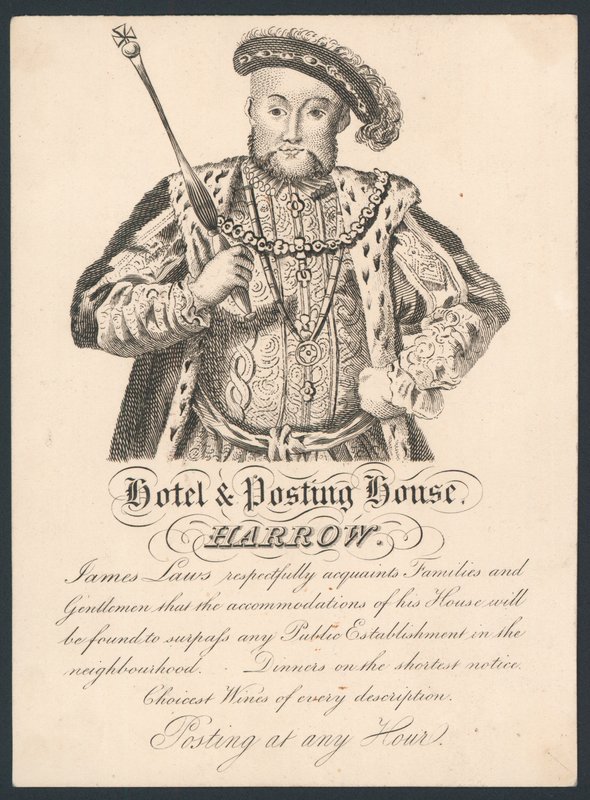 Hotel & Posting House.
HARROW.
James Laws respectfully acquaints Families and
Gentlemen that the accommodations of his House will
be found to surpaſs any Public Establishment in the
neighbourhood. Dinners on the shortest notice.
Choicest Wines of every description.
Posting at any Hour.